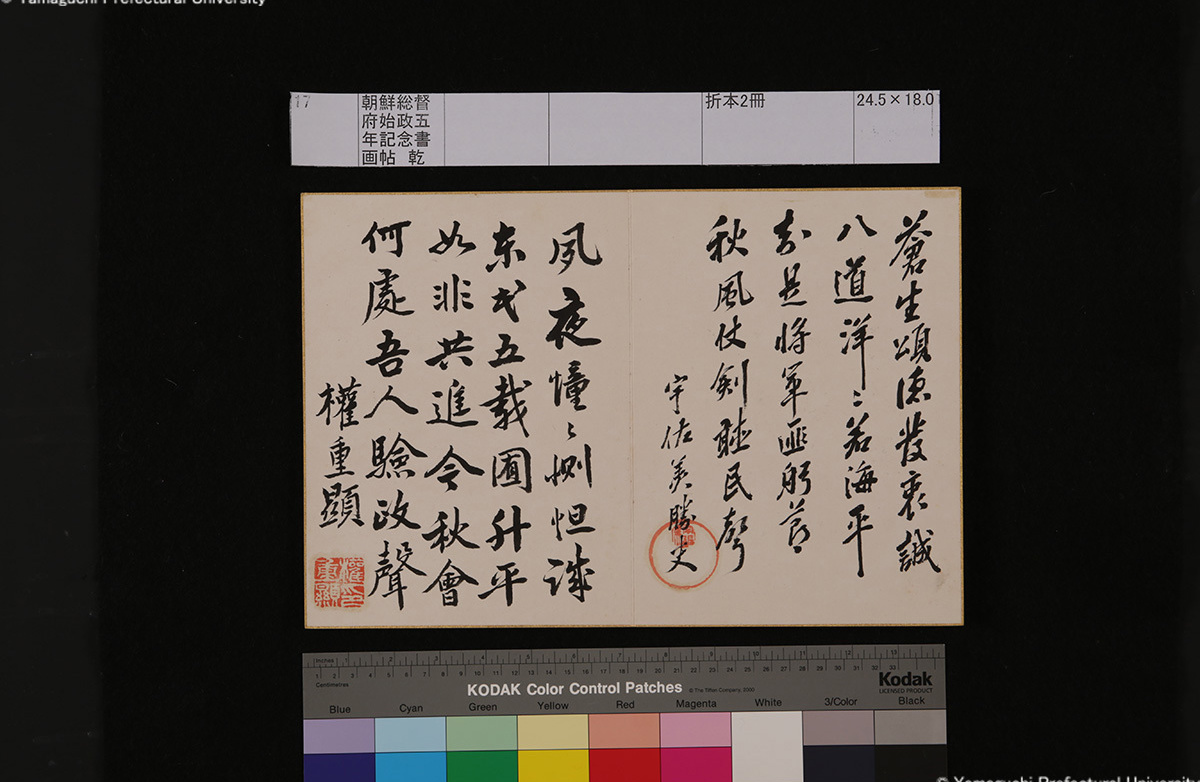 © Yamaguchi Prefectural University
17
朝鮮総督
府始政五
年記念書
画帖 乾
折本2冊
24.5×18.0
蒼生頌徳發衷誠
八道洋〻若海平
知是將軍匪躬節
秋風仗剣聴民聲
宇佐美勝夫
夙夜憧〻惻怛誠
東民五載囿升平
如非共進今秋會
何處吾人驗政聲
權重顯
Inches 1 2 3 4 5 6 7 8 9 10 11 12 13
Centimetres
KODAK Color Control Patches
© The Tiffen Company, 2000
Kodak
LICENSED PRODUCT
Blue Cyan Green Yellow Red Magenta White 3/Color Black
© Yamaguchi Prefectural University